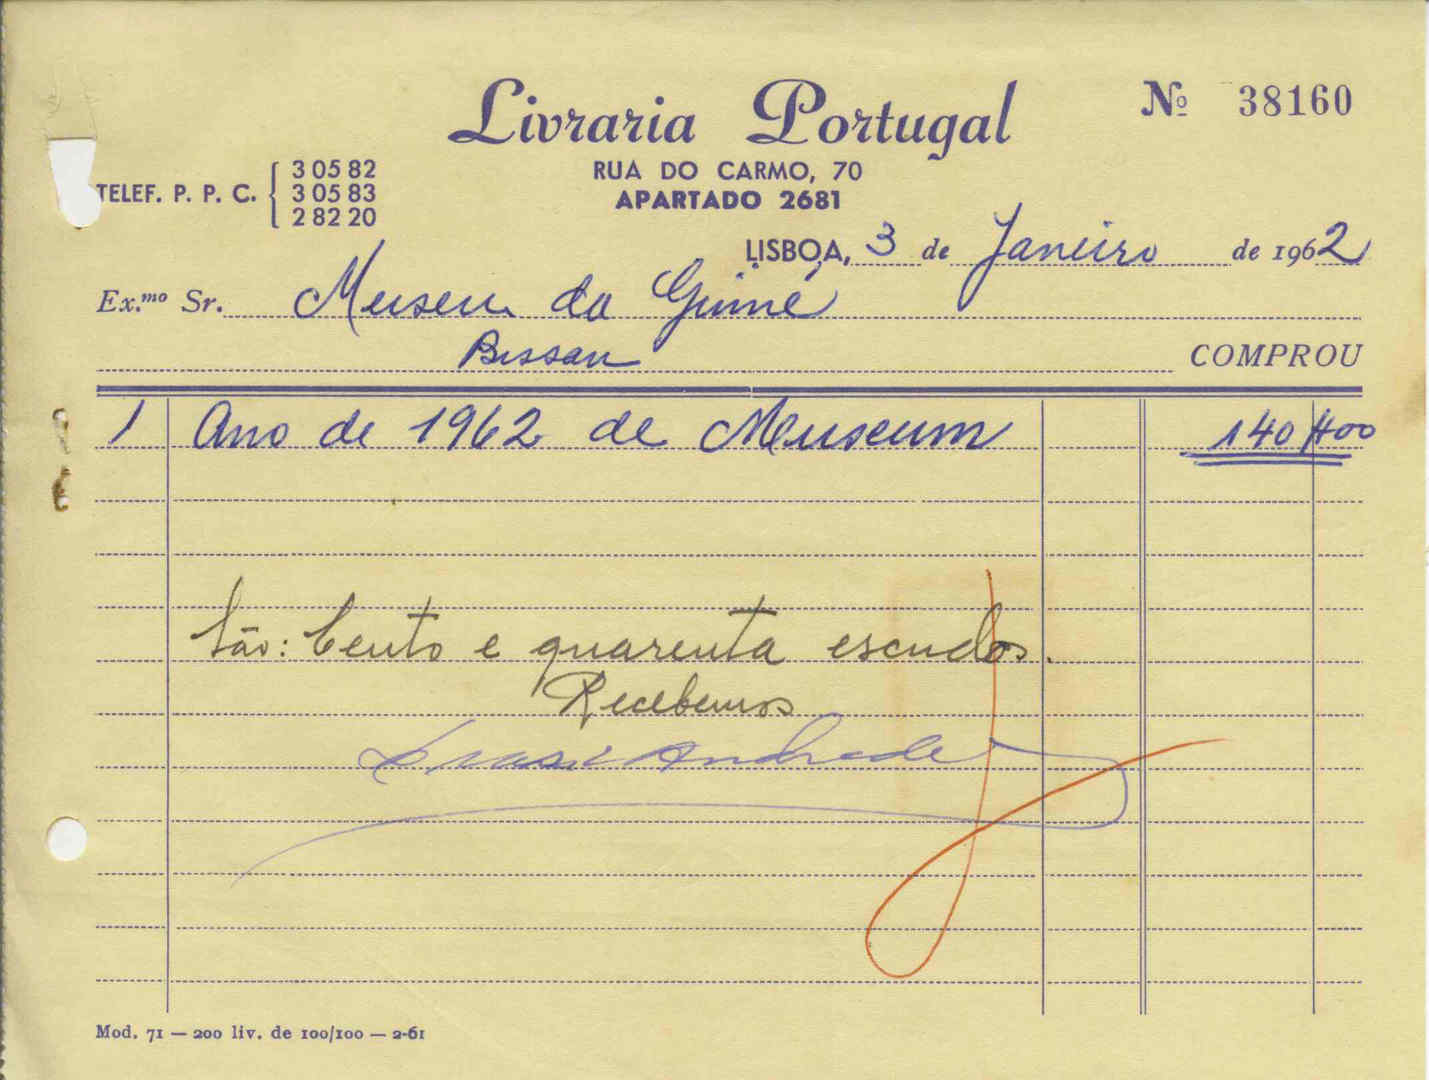 Livraria Portugal
Nº 38160
RUA DO CARMO, 70
APARTADO 2681
TELEF. P. P. C. { 3 05 82
3 05 83
2 82 20
LISBOA, 3 de Janeiro de 1962
Ex.mo Sr. Museu da Guiné
Bissau COMPROU
1 Ano de 1962 de Museum 140$00
São: Cento e quarenta escudos.
Recebemos
Andrade
Mod. 71 — 200 liv. de 100/100 — 2-61